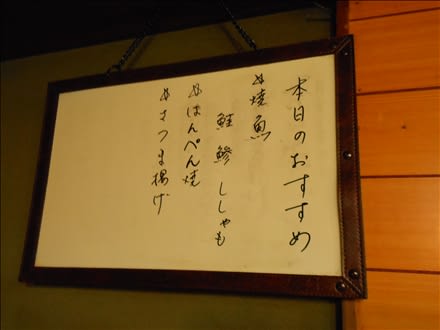 本日のおすすめ
〆焼魚
鮭 鯵 ししゃも
〆はんぺん焼
〆さつま揚げ